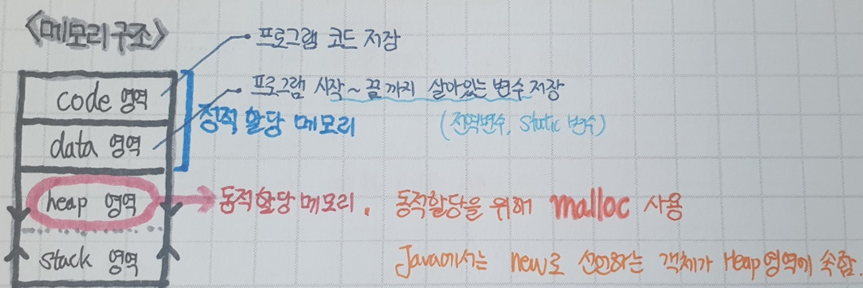 <메모리구조>
프로그램 코드 저장
code 영역
프로그램 시작~끝까지 살아있는 변수 저장
정적 할당 메모리
(전역변수, static 변수)
data 영역
heap 영역
동적할당 메모리. 동적할당을 위해 malloc 사용
stack 영역
Java에서는 new로 선언하는 객체가 Heap영역에 속함